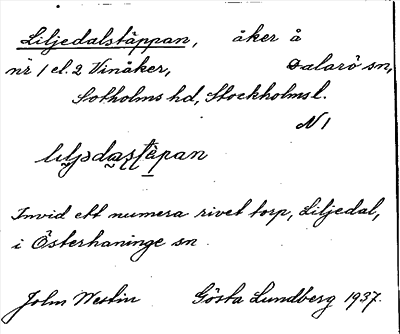 Liljedalstäppan, åker å
nr 1 el. 2 Vinåker, Dalarö sn,
Sotholms hd, Stockholms l.
N 1
liljədastäpan
Invid ett numera rivet torp, Liljedal,
i Österhaninge sn
John Westin Gösta Lundberg 1937.